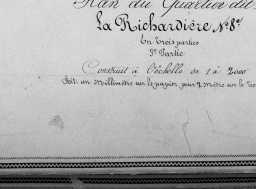 Plan du Quartier dit
La Richardière N° 8
En Trois parties
3e Partie
Construit à l'échelle de 1 à 2000
Soit un millimètre sur le papier, pour 2 mètres sur le